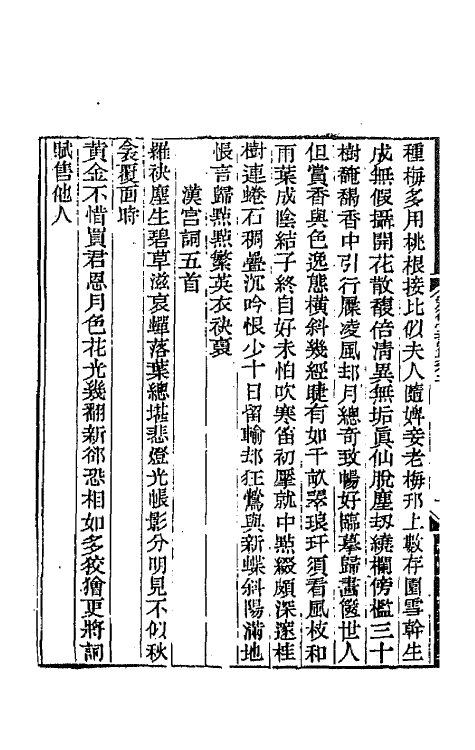 種梅多用桃根接比似夫人隨婢妾老梅邛上數存園雪幹生
成無假攝開花散馥倍清異無垢眞仙脫塵刼繞欄傍檻三十
樹馣馤香中引行屧凌風却月總奇致暢好臨摹歸畵箑世人
但賞香與色逸態橫斜幾經睫有如千畝翠琅玕須看風枝和
雨葉成陰結子終自好未怕吹寒笛初擪就中㸃綴頗深邃桂
樹連蜷石稠疊沉吟恨少十日留輸却狂鶯與新蝶斜陽滿地
悵言歸㸃㸃繁英衣袂裛
漢宮詞五首
羅袂塵生碧草滋哀蟬落葉總堪悲燈光帳影分明見不似秋
衾覆面時
黃金不惜買君恩月色花光幾翻新郤恐相如多狡獪更將詞
賦售他人